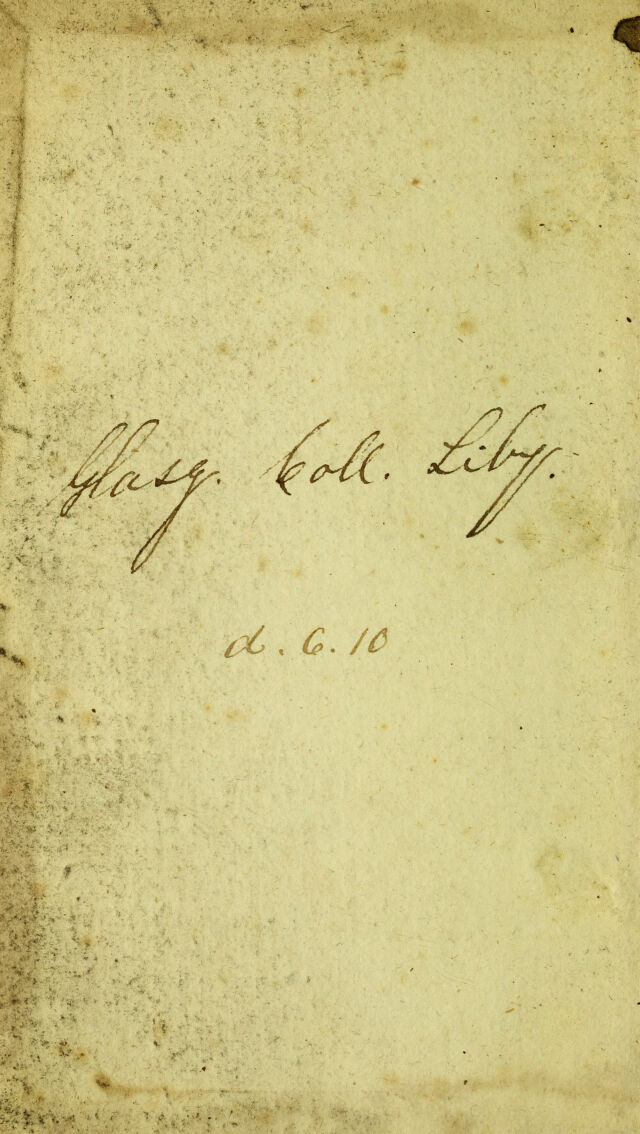 Glasg. Coll. Liby.
d. 6. 10